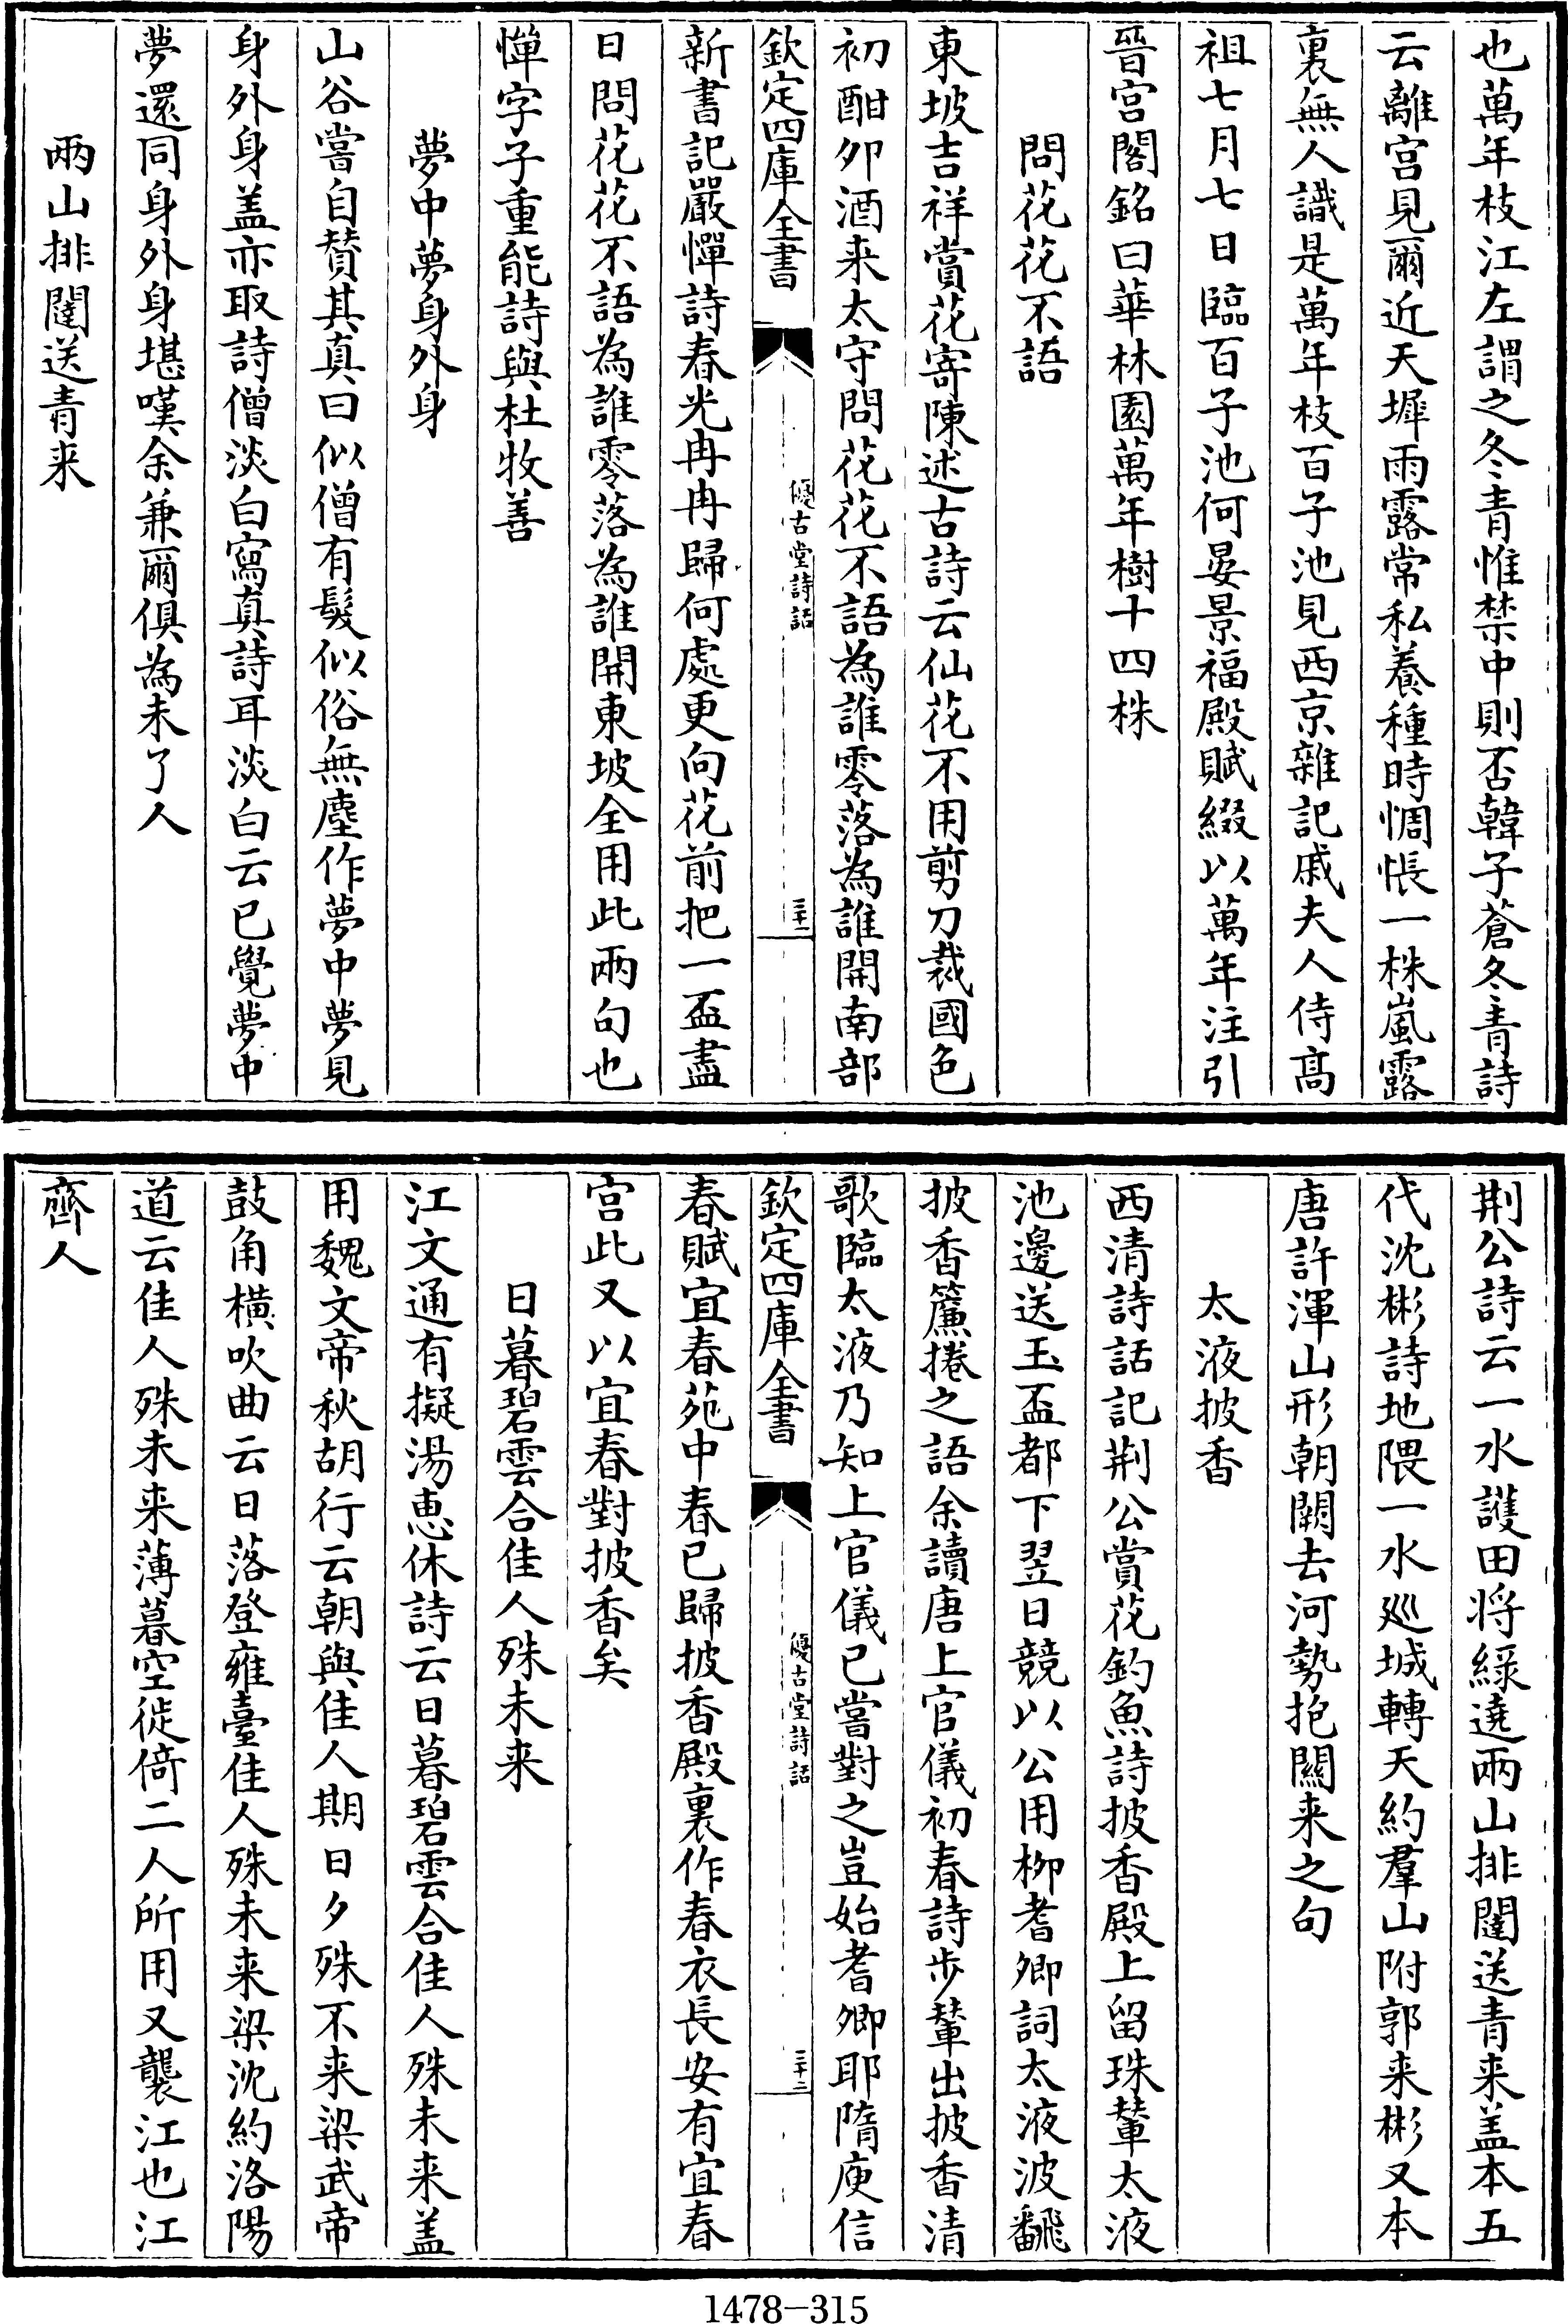 也萬年枝江左謂之冬青惟禁中則否韓子蒼冬青詩
云離宫見爾近天墀雨露常私養種時惆悵一株嵐露
裏無人識是萬年枝百子池見西京雜記戚夫人侍髙
祖七月七日臨百子池何晏景福殿賦綴以萬年注引
晉宫閣銘曰華林園萬年樹十四株
問花花不語
東坡吉祥賞花寄陳述古詩云仙花不用剪刀裁國色
初酣夘酒来太守問花花不語為誰零落為誰開南部
欽定四庫全書
優古堂詩話
三十一
新書記嚴憚詩春光冉冉歸何處更向花前把一盃盡
日問花花不語為誰零落為誰開東坡全用此兩句也
憚字子重能詩與杜牧善
夢中夢身外身
山谷嘗自贊其真曰似僧有髮似俗無塵作夢中夢見
身外身盖亦取詩僧淡白寫真詩耳淡白云已覺夢中
夢還同身外身堪嘆余兼爾俱為未了人
兩山排闥送青来
荆公詩云一水護田将緑遶兩山排闥送青来盖本五
代沈彬詩地隈一水廵城轉天約羣山附郭来彬又本
唐許渾山形朝闕去河勢抱關来之句
太液披香
西清詩話記荆公賞花釣魚詩披香殿上留珠輦太液
池邊送玉盃都下翌日競以公用栁耆卿詞太液波飜
披香簾捲之語余讀唐上官儀初春詩步輦出披香清
歌臨太液乃知上官儀已嘗對之豈始耆卿耶隋庾信
欽定四庫全書
優古堂詩話
三十二
春賦宜春苑中春已歸披香殿裏作春衣長安有宜春
宫此又以宜春對披香矣
日暮碧雲合佳人殊未来
江文通有擬湯恵休詩云日暮碧雲合佳人殊未来盖
用魏文帝秋胡行云朝與佳人期日夕殊不来梁武帝
鼓角横吹曲云日落登雍臺佳人殊未来梁沈約洛陽
道云佳人殊未来薄暮空徙倚二人所用又襲江也江
齊人
1478-315